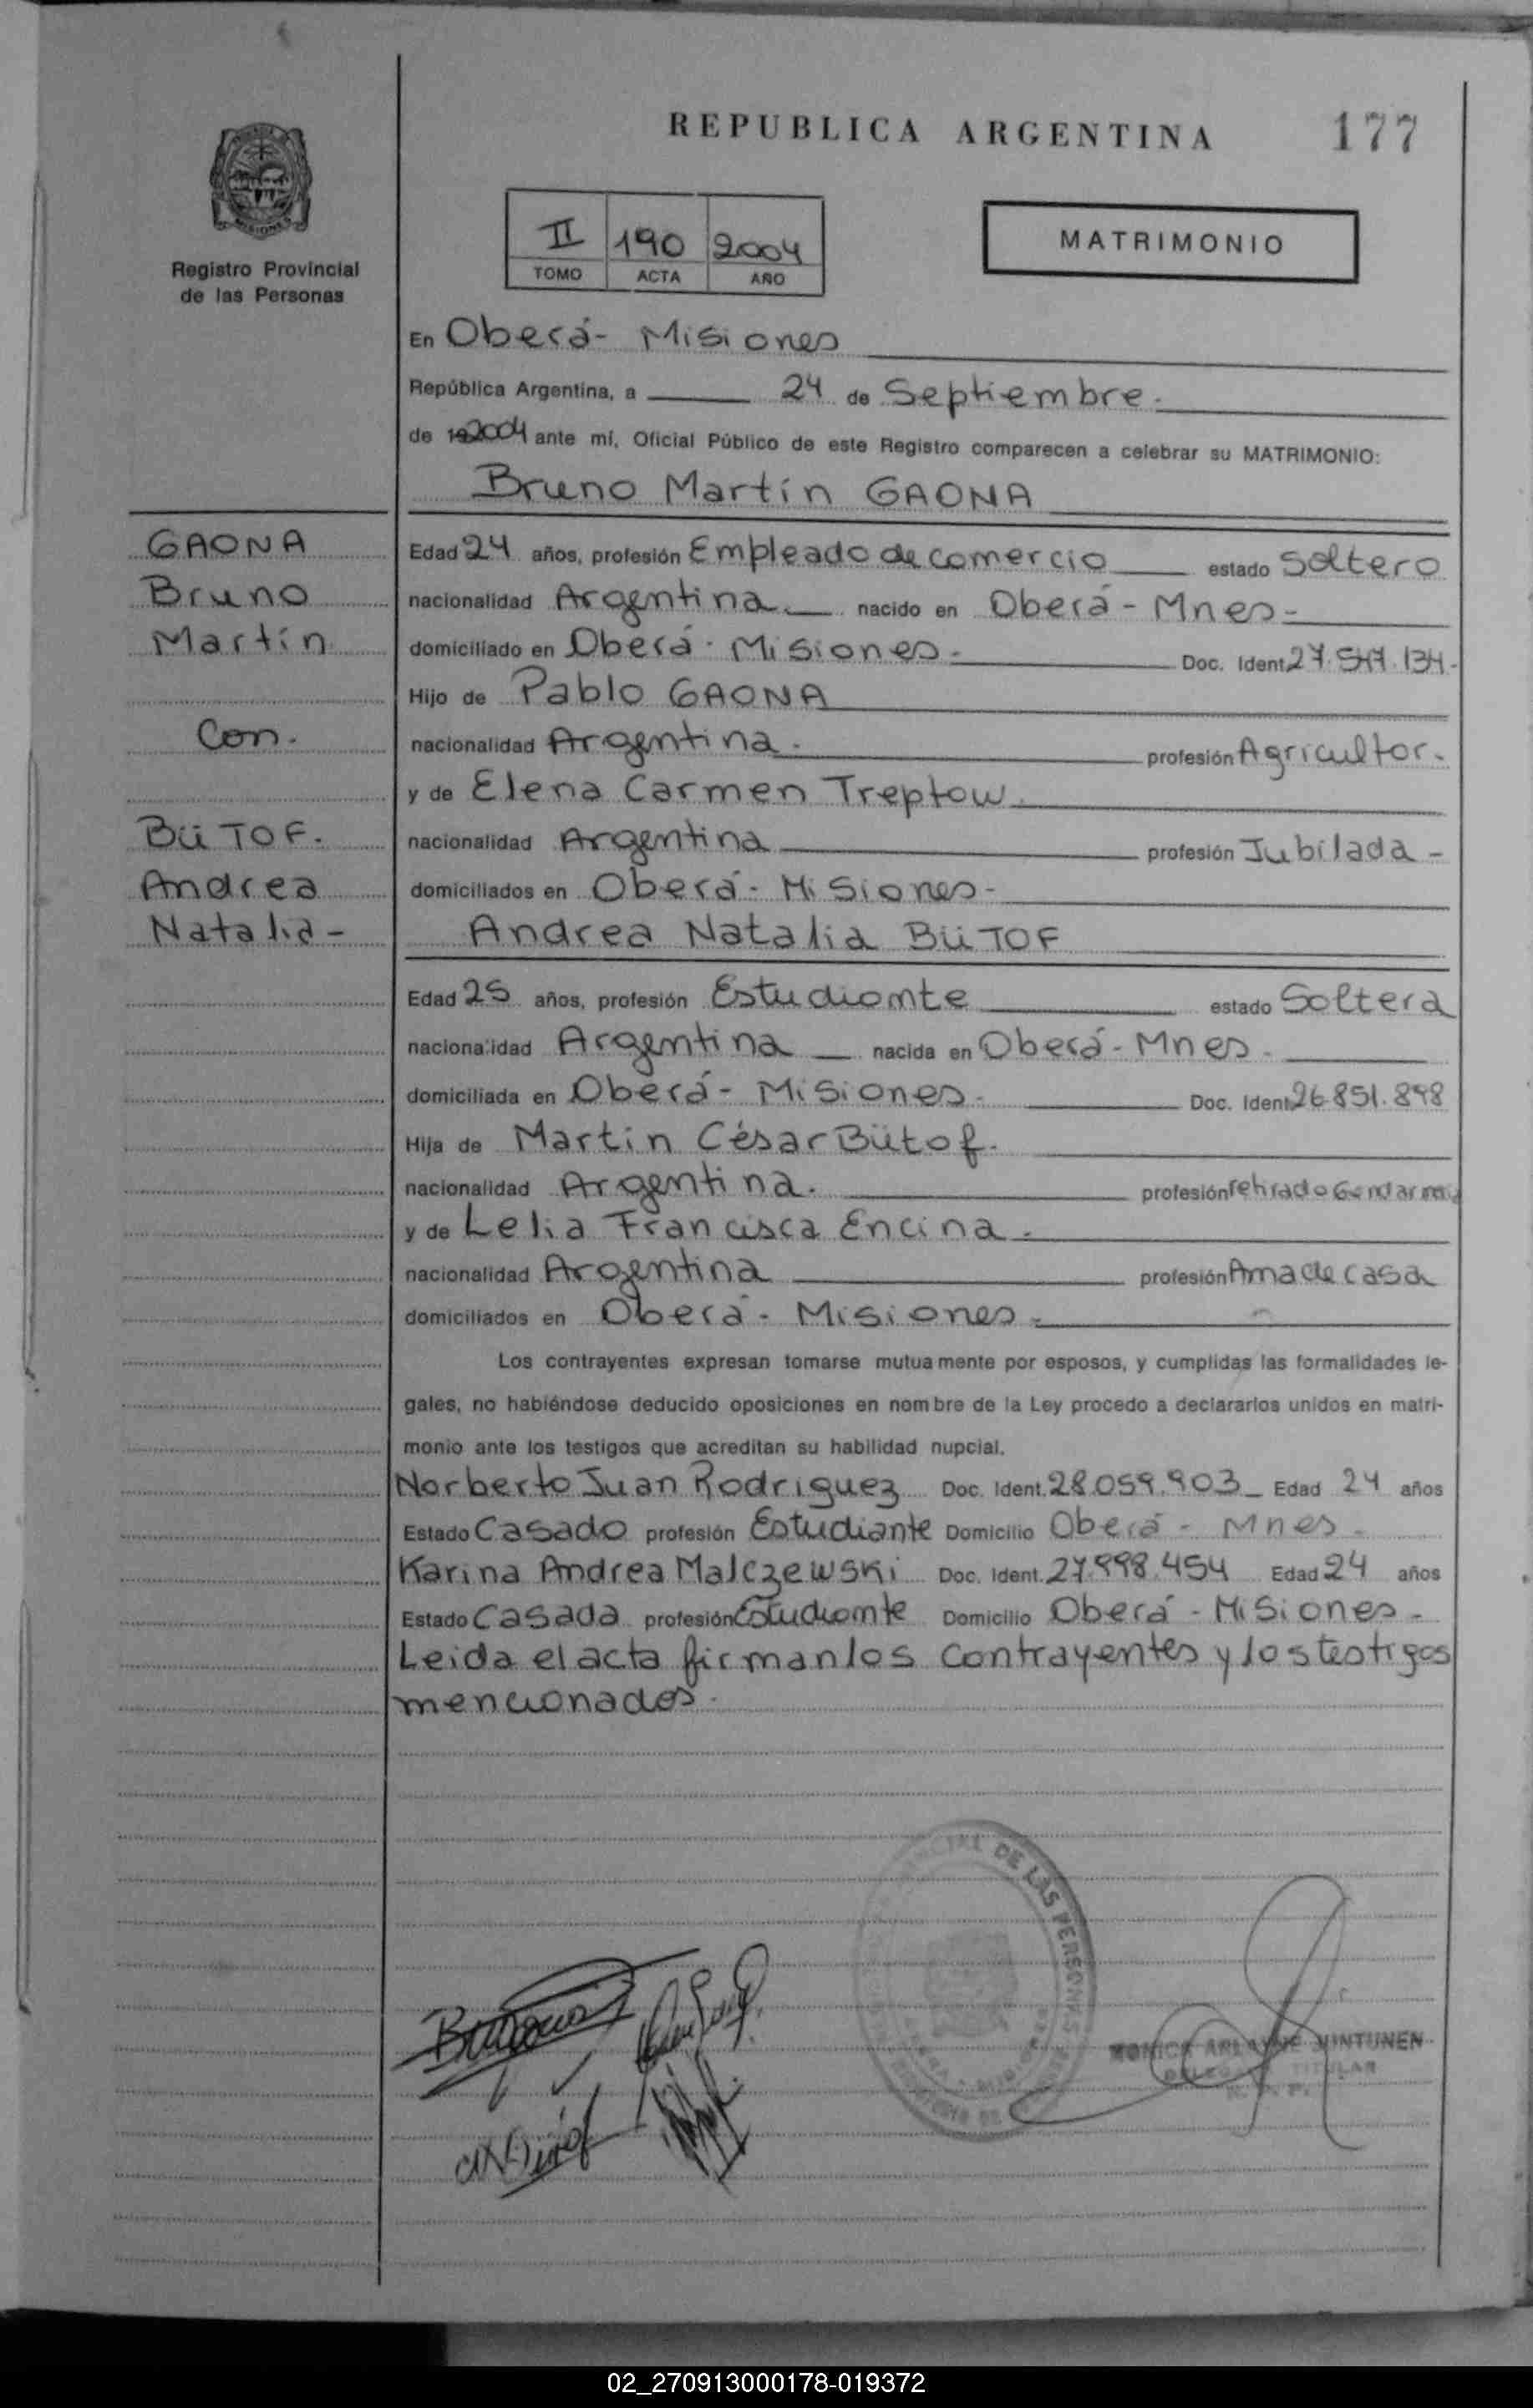 REPUBLICA ARGENTINA
177
Registro Provincial
de las Personas
II 190 2004
TOMO ACTA AÑO
MATRIMONIO
En Oberá - Misiones
República Argentina, a 24 de Septiembre.
de 2004 ante mí, Oficial Público de este Registro comparecen a celebrar su MATRIMONIO:
Bruno Martín GAONA
GAONA
Bruno
Martín
Con.
BüTOF.
Andrea
Natalia -
Edad 24 años, profesión Empleado de comercio estado Soltero
nacionalidad Argentina nacido en Oberá - Mnes -
domiciliado en Oberá - Misiones - Doc. Ident. 134 -
Hijo de Pablo GAONA
nacionalidad Argentina - profesión Agricultor -
y de Elena Carmen Treptow.
nacionalidad Argentina profesión Jubilada -
domiciliados en Oberá - Misiones -
Andrea Natalia BüTOF
Edad 25 años, profesión Estudiante estado Soltera
nacionalidad Argentina nacida en Oberá - Mnes -
domiciliada en Oberá - Misiones - Doc. Ident. 26.851.898
Hija de Martin César Bütof.
nacionalidad Argentina. profesión retirado Gendarmeria
y de Lelia Francisca Encina.
nacionalidad Argentina profesión Ama de casa
domiciliados en Oberá - Misiones -
Los contrayentes expresan tomarse mutuamente por esposos, y cumplidas las formalidades le-
gales, no habiéndose deducido oposiciones en nombre de la Ley procedo a declararlos unidos en matri-
monio ante los testigos que acreditan su habilidad nupcial.
Norberto Juan Rodriguez Doc. Ident. 28.059.903 Edad 24 años
Estado Casado profesión Estudiante Domicilio Oberá - Mnes -
Karina Andrea Malczewski Doc. Ident. 27.998.454 Edad 24 años
Estado Casada profesión Estudiante Domicilio Oberá - Misiones -
Leida el acta firman los contrayentes y los testigos
mencionados.
DE LAS PERSONAS
MONICA JUNTUNEN
TITULAR
02_270913000178-019372